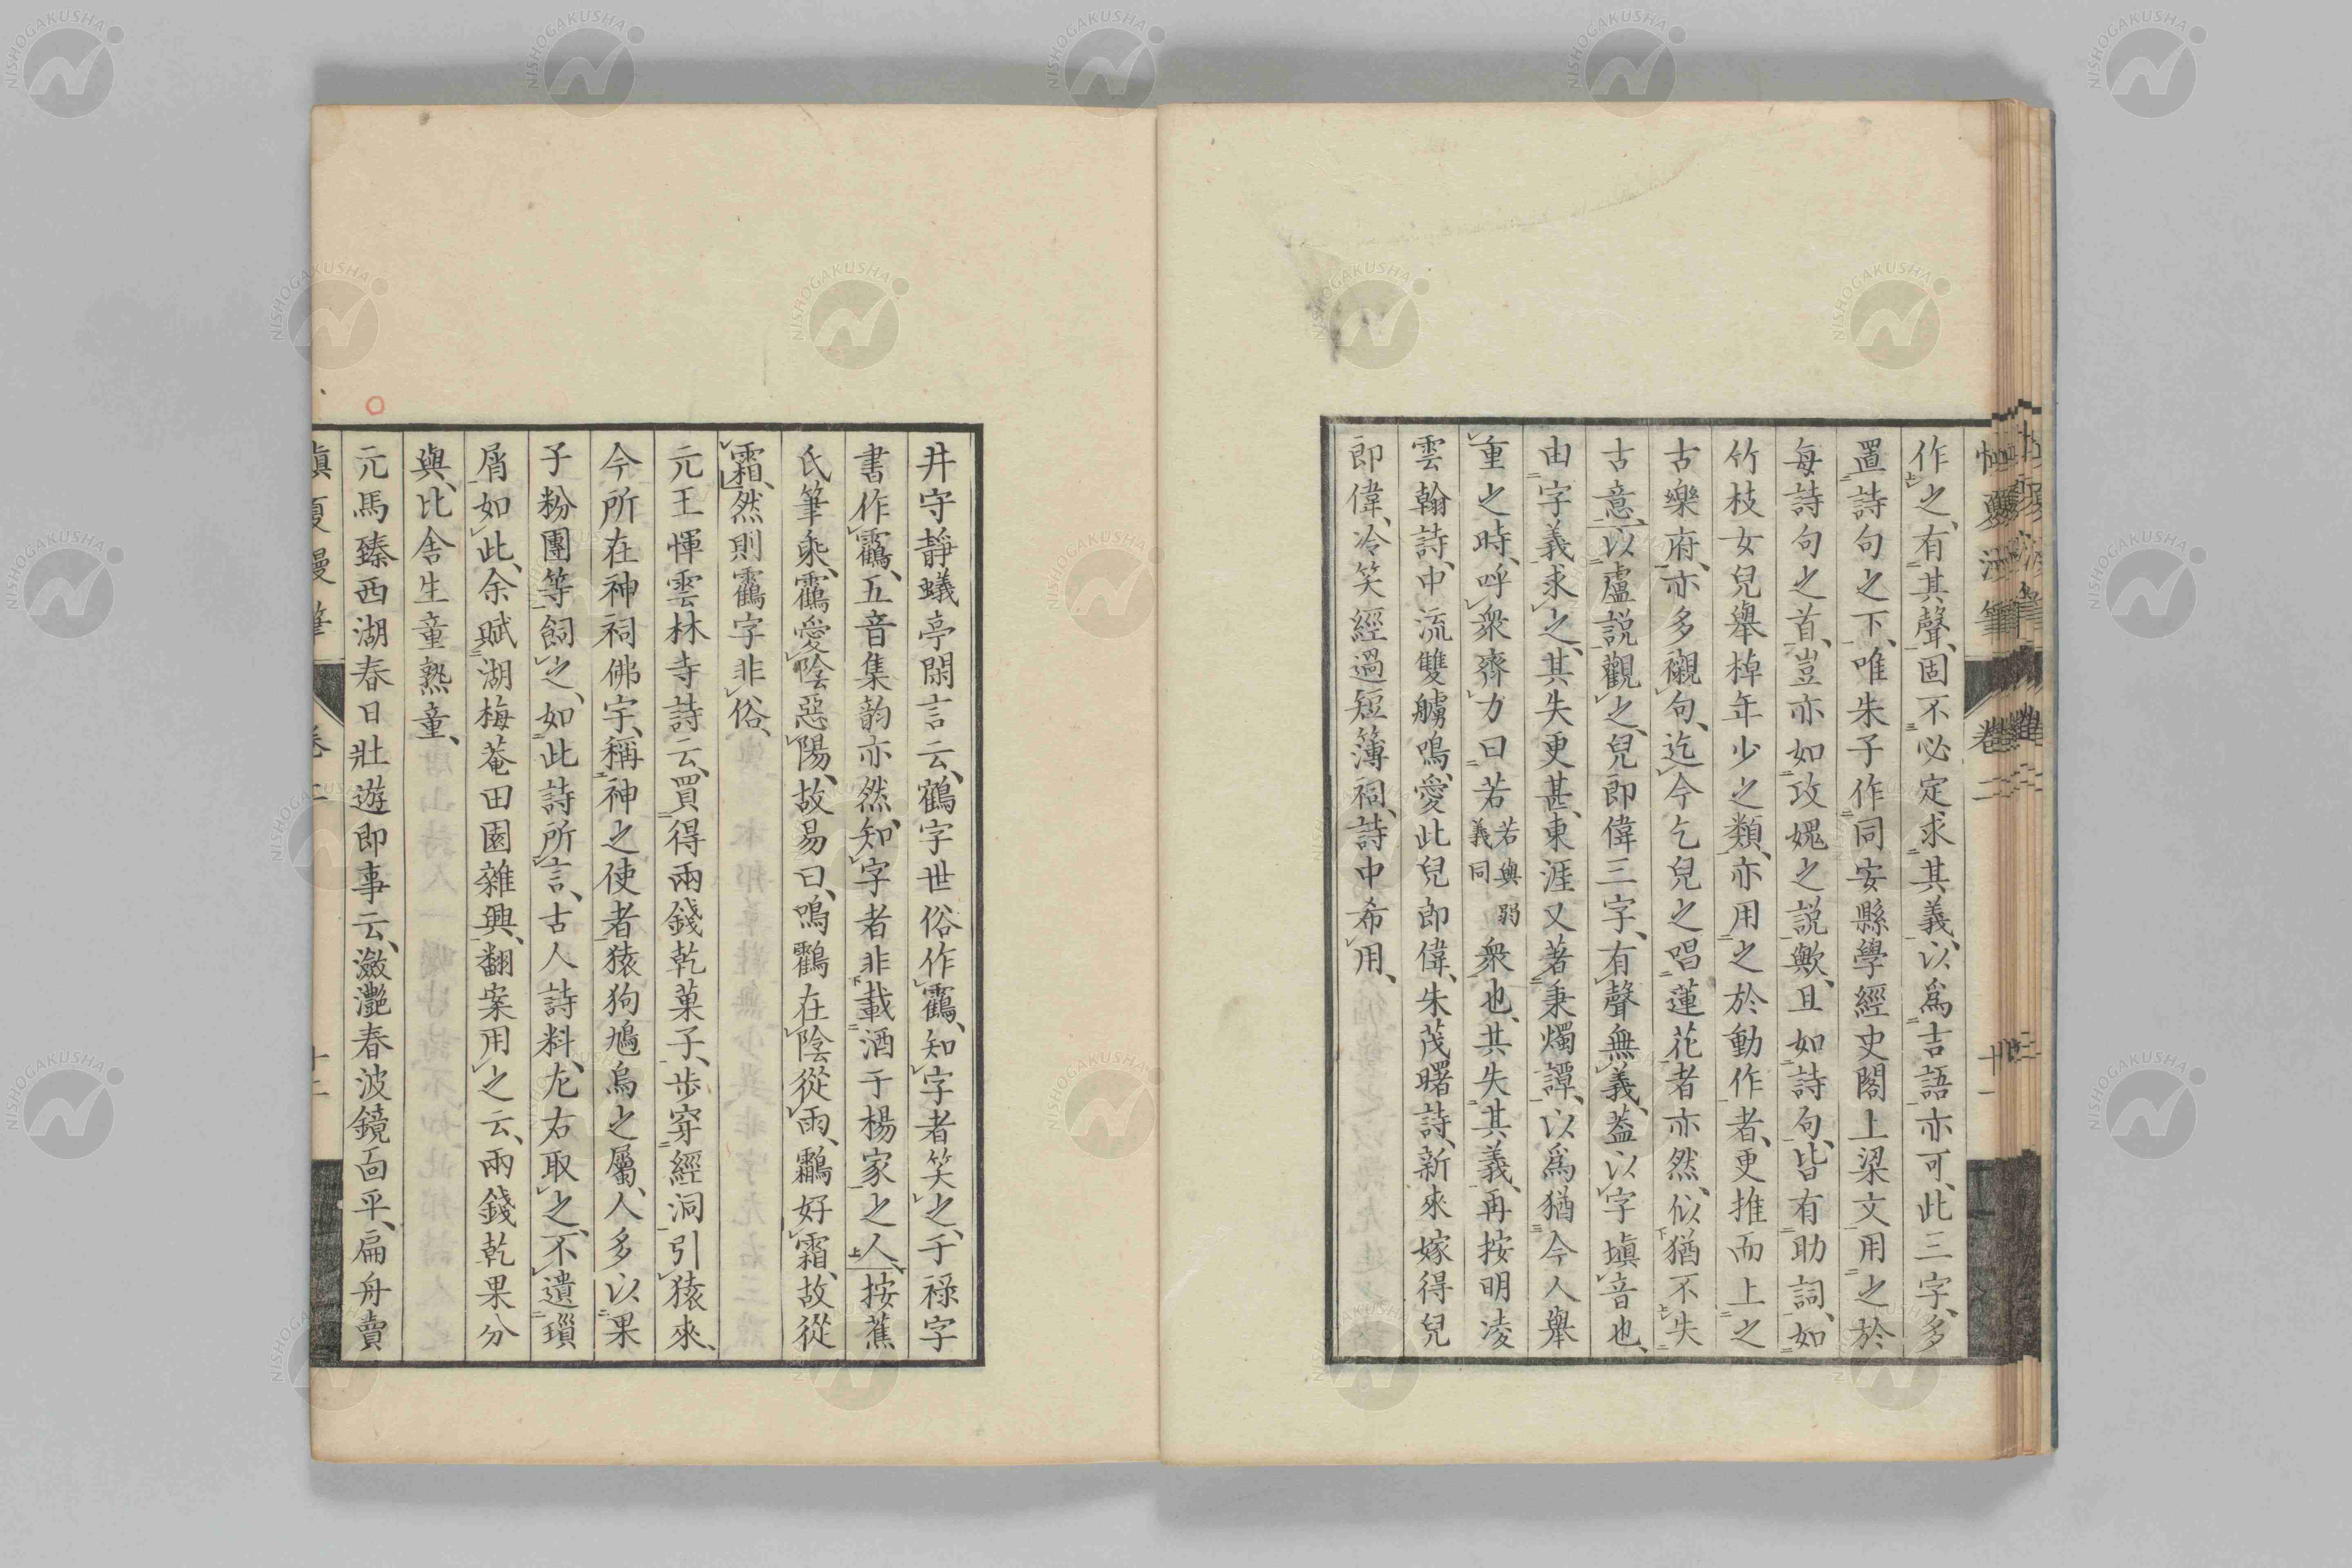 作之、有其聲、固不必定求其義、以爲吉語亦可、此三字、多
置詩句之下、唯朱子作同安縣學經史閣上梁文用之於
每詩句之首、豈亦如攻媿之説歟、且如詩句、皆有助詞、如
竹枝女兒舉棹年少之類、亦用之於動作者、更推而上之
古樂府、亦多襯句、迄今乞兒之唱蓮花者亦然、似猶不失
古意、以盧説觀之、兒郎偉三字、有聲無義、蓋以字塡音也、
由字義求之、其失更甚、東涯又著秉燭譚、以爲猶今人舉
重之時、呼衆齊力曰若若與弱義同衆也、其失其義、再按明凌
雲翰詩、中流雙艣鳴、愛此兒郎偉、朱茂曙詩、新來嫁得兒
郎偉、冷笑經過短簿祠、詩中希用、
卷二
十一
井守靜蟻亭閑言云、鶴字世俗作靏、知字者笑之、干祿字
書作靏、五音集韵亦然、知字者非載酒于楊家之人、按蕉
氏筆乘、靏愛陰惡陽、故易曰、鳴靏在陰從雨、靏好霜、故從
霜、然則靏字非俗、
元王惲雲林寺詩云、買得兩錢乾菓子、步穿經洞引猿來、
今所在神祠佛宇、稱神之使者猿狗鳩烏之屬、人多以果
子粉團等飼之、如此詩所言、古人詩料、左右取之、不遺瑣
屑如此、余賦湖梅菴田園雜興、翻案用之云、兩錢乾果分
與、比舍生童熟童、
元馬臻西湖春日壯遊即事云、瀲灔春波鏡面平、扁舟賣